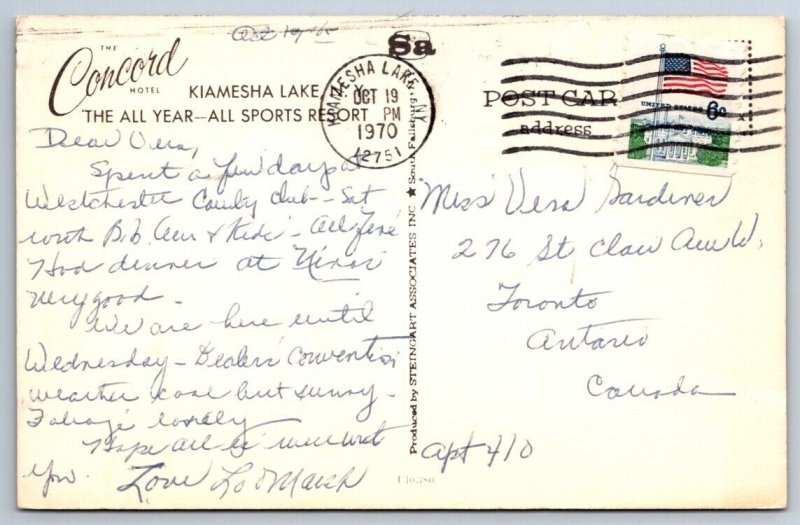 Oct 19
THE
Concord
HOTEL
KIAMESHA LAKE, N.Y.
THE ALL YEAR—ALL SPORTS RESORT
Sa
KIAMESHA LAKE, NY
OCT 19
PM
1970
12751
POST CAR
address
UNITED STATES 6c
Dear Vera,
Spent a few days at
Westchester County Club -- Sat
with Bob & Kids - all fine
Had dinner at Ninos
very good -
We are here until
Wednesday - Dealers Convention
weather cool but sunny -
Foliage lovely
Hope all is well
you.
Love Lo & Marsh
Produced by STEINGART ASSOCIATES INC ★ South Fallsburg, N.Y.
Miss Vera Gardiner
276 St Clair Ave W.
Toronto
Ontario
Canada
Apt 410